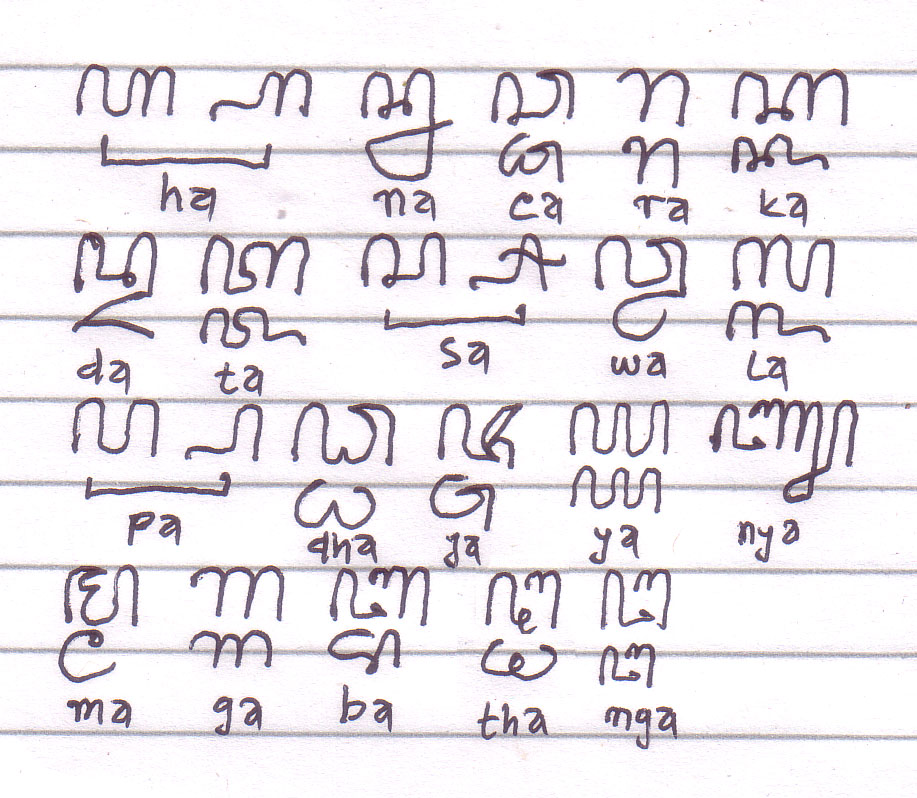 ꦲ ꧀ꦲ ꦤ ꦕ ꦫ ꦏ
꧀ꦤ ꧀ꦕ ꧀ꦫ ꧀ꦏ
ha na ca ra ka
ꦢ ꦠ ꦱ ꧀ꦱ ꦮ ꦭ
꧀ꦢ ꧀ꦠ ꧀ꦮ ꧀ꦭ
da ta sa wa La
ꦥ ꧀ꦥ ꦝ ꦗ ꦪ ꦚ
꧀ꦝ ꧀ꦗ ꧀ꦪ
pa dha ja ya nya
ꦩ ꦒ ꦧ ꦛ ꦔ
꧀ꦩ ꧀ꦒ ꧀ꦧ ꧀ꦛ ꧀ꦔ
ma ga ba tha nga